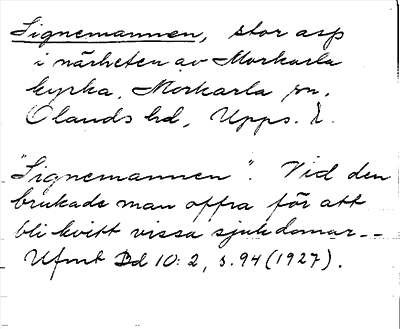 Signemannen, stor asp
i närheten av Morkarla
kyrka, Morkarla sn,
Olands hd, Upps. l.
"Signemannen". Vid den
brukade man offra för att
bli kvitt vissa sjukdomar--
Ufmt Bd 10:2, s.94 (1927).